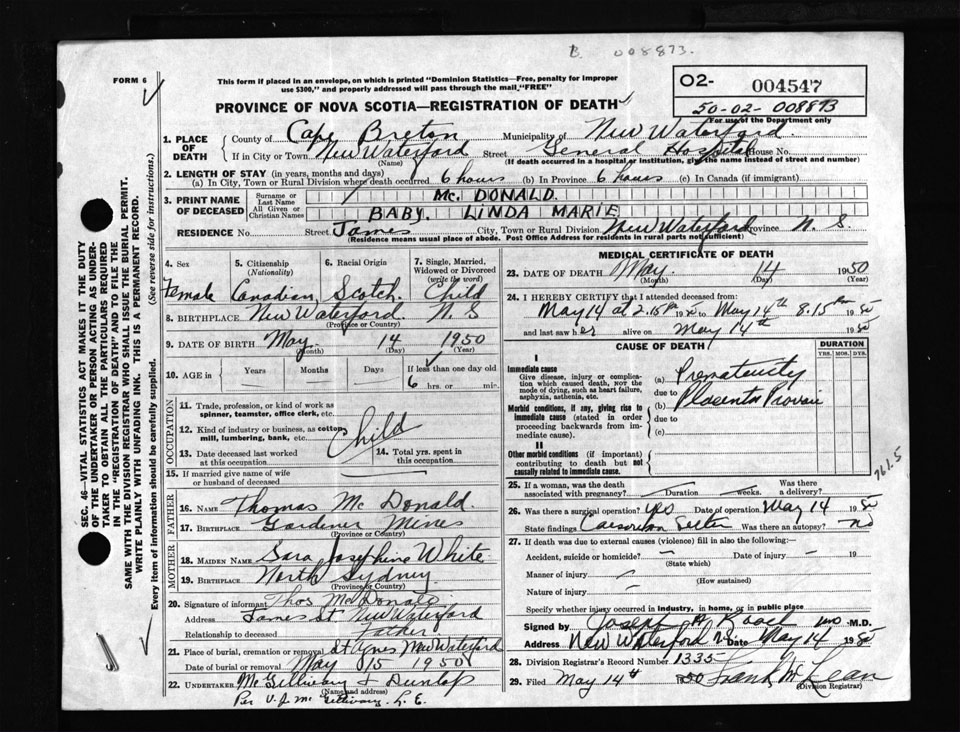 B. 008873.
FORM 6
This form if placed in an envelope, on which is printed "Dominion Statistics—Free, penalty for improper
use $300," and properly addressed will pass through the mail, "FREE"
O2- 004547
50-02-008873
For use of the Department only
PROVINCE OF NOVA SCOTIA—REGISTRATION OF DEATH
1. PLACE OF DEATH
County of Cape Breton Municipality of New Waterford
If in City or Town New Waterford Street General Hospital House No.
(Name) (If death occurred in a hospital or institution, give the name instead of street and number)
2. LENGTH OF STAY (in years, months and days)
(a) In City, Town or Rural Division where death occurred 6 hours (b) In Province 6 hours (c) In Canada (if immigrant)
3. PRINT NAME OF DECEASED
Surname or Last Name Mc. DONALD.
All Given or Christian Names BABY. LINDA MARIE
RESIDENCE No. Street James City, Town or Rural Division New Waterford Province N. S
(Residence means usual place of abode. Post Office Address for residents in rural parts not sufficient)
4. Sex Female
5. Citizenship (Nationality) Canadian
6. Racial Origin Scotch.
7. Single, Married, Widowed or Divorced (write the word) Child
8. BIRTHPLACE New Waterford. N. S
(Province or Country)
9. DATE OF BIRTH May 14 1950
(Month) (Day) (Year)
10. AGE in Years Months Days If less than one day old
6 hrs. or min.
OCCUPATION
11. Trade, profession, or kind of work as
spinner, teamster, office clerk, etc.
12. Kind of industry or business, as cotton
mill, lumbering, bank, etc.
Child
13. Date deceased last worked
at this occupation
14. Total yrs. spent in
this occupation
15. If married give name of wife
or husband of deceased
FATHER
16. NAME Thomas McDonald.
17. BIRTHPLACE Gardener Mines
(Province or Country)
MOTHER
18. MAIDEN NAME Sara Josephine White
19. BIRTHPLACE North Sydney.
(Province or Country)
20. Signature of informant Thos McDonald
Address James St New Waterford
Relationship to deceased father.
21. Place of burial, cremation or removal St Agnes New Waterford
Date of burial or removal May 15 1950
22. UNDERTAKER McGillivary & Dunlop
(Name and address)
Per V. J. McGillivary. L. E.
MEDICAL CERTIFICATE OF DEATH
23. DATE OF DEATH May. 14 1950
(Month) (Day) (Year)
24. I HEREBY CERTIFY that I attended deceased from
May 14 at 2.15 to May 14th 8.15 pm 1950
and last saw her alive on May 14th 1950
CAUSE OF DEATH
DURATION
YRS. MOS. DYS.
I
Immediate cause
Give disease, injury or complica-
tion which caused death, not the
mode of dying, such as heart failure,
asphyxia, asthenia, etc.
(a) Prematurity
due to
Morbid conditions, if any, giving rise to
immediate cause (stated in order
proceeding backwards from im-
mediate cause).
(b) Placenta
due to
(c)
II
Other morbid conditions (if important)
contributing to death but not
causally related to immediate cause.
761.5
25. If a woman, was the death
associated with pregnancy? Duration weeks. Was there
a delivery?
26. Was there a surgical operation? yes Date of operation May 14 1950
State findings Caesarean Section Was there an autopsy? no
27. If death was due to external causes (violence) fill in also the following:—
Accident, suicide or homicide? Date of injury 19
(State which)
Manner of injury
(How sustained)
Nature of injury
Specify whether injury occurred in industry, in home, or in public place
Signed by Joseph B Roach MD M.D.
Address New Waterford NS Date May 14 1950
28. Division Registrar's Record Number 1335
29. Filed May 14th 1950 Frank McLean
(Division Registrar)
SEC. 46—VITAL STATISTICS ACT MAKES IT THE DUTY
OF THE UNDERTAKER OR PERSON ACTING AS UNDER-
TAKER TO OBTAIN ALL THE PARTICULARS REQUIRED
IN THE "REGISTRATION OF DEATH" AND TO FILE THE
SAME WITH THE DIVISION REGISTRAR WHO SHALL ISSUE THE BURIAL PERMIT.
WRITE PLAINLY WITH UNFADING INK. THIS IS A PERMANENT RECORD.
Every item of information should be carefully supplied. (See reverse side for instructions.)